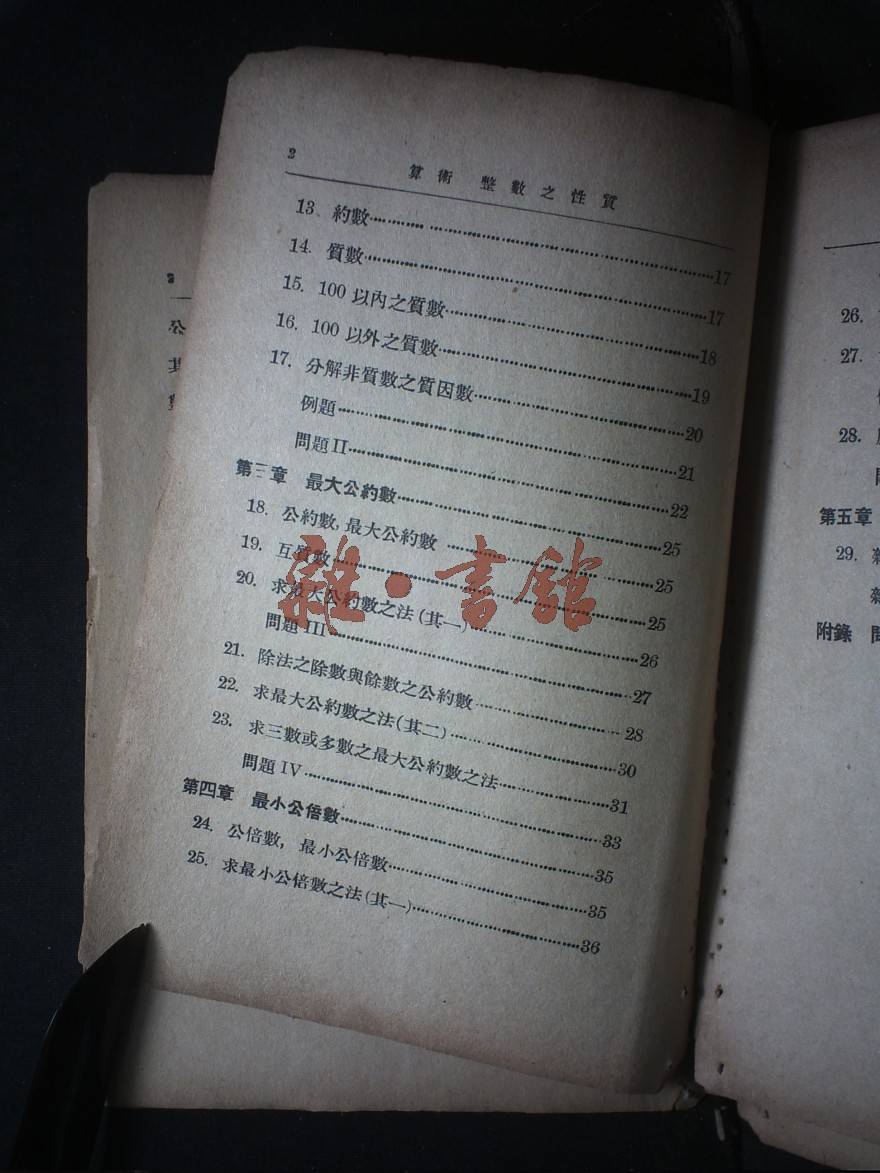 2
算術 整數之性質
13. 約數……17
14. 質數……17
15. 100以內之質數……18
16. 100以外之質數……19
17. 分解非質數之質因數……20
例題……21
問題II……22
第三章 最大公約數……25
18. 公約數,最大公約數……25
19. 互質數……25
20. 求最大公約數之法(其一)……26
問題III……27
21. 除法之除數與餘數之公約數……28
22. 求最大公約數之法(其二)……30
23. 求三數或多數之最大公約數之法……31
問題IV……33
第四章 最小公倍數……35
24. 公倍數, 最小公倍數……35
25. 求最小公倍數之法(其一)……36
雜·書館
公
其
26.
27.
28.
第五章
29.
附錄